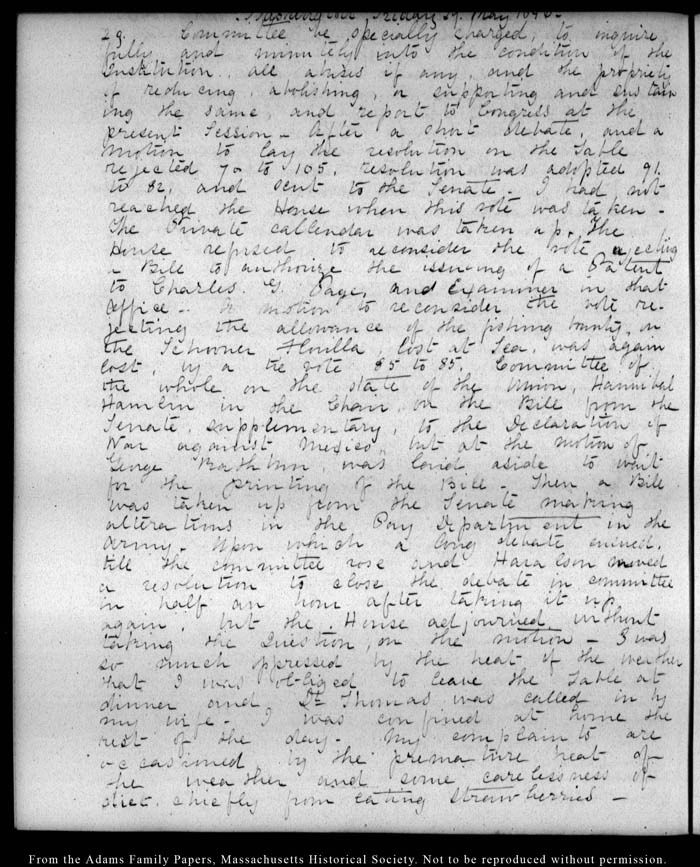 Washington Friday 29. May 1846.
29. Committee be specially charged, to inquire
fully and minutely into the condition of the
Institution, all abuses if any, and the propriety
of reducing, abolishing, or supporting and sustain
ing the same, and report to Congress at the
present Session - After a short debate, and a
motion to lay the resolution on the table
rejected 70 to 105. resolution was adopted 91.
to 82, and sent to the Senate - I had not
reached the House when this vote was taken -
The Private callendar was taken up. The
House refused to reconsider the vote rejecting
a Bill to authorize the issuing of a Patent
to Charles G. Page, and Examiner in that
Office - A motion to reconsider the vote re-
jecting the allowance of the fishing bounty, on
the Schooner Florilla, lost at Sea, was again
lost, by a tie vote 85 to 85. Committee of
the whole, on the state of the Union, Hannibal
Hamlin in the Chair, on the Bill from the
Senate, supplementary, to the Declaration of
War against Mexico, but at the motion of
George Rathbun, was laid aside to wait
for the printing of the Bill - Then a Bill
was taken up from the Senate making
alterations in the Pay Department in the
Army. Upon which a long debate ensued,
till the committee rose and Haralson moved
a resolution to close the debate in committee
in half an hour after taking it up
again, but the House adjourned without
taking the Question, on the motion - I was
so much oppressed by the heat of the weather
that I was obliged to leave the table at
dinner and Dr. Thomas was called in by
my wife - I was confined at home the
rest of the day - My complaints are
occasioned by the premature heat of
the weather and some carelessness of
diet, chiefly from eating strawberries -
From the Adams Family Papers, Massachusetts Historical Society. Not to be reproduced without permission.